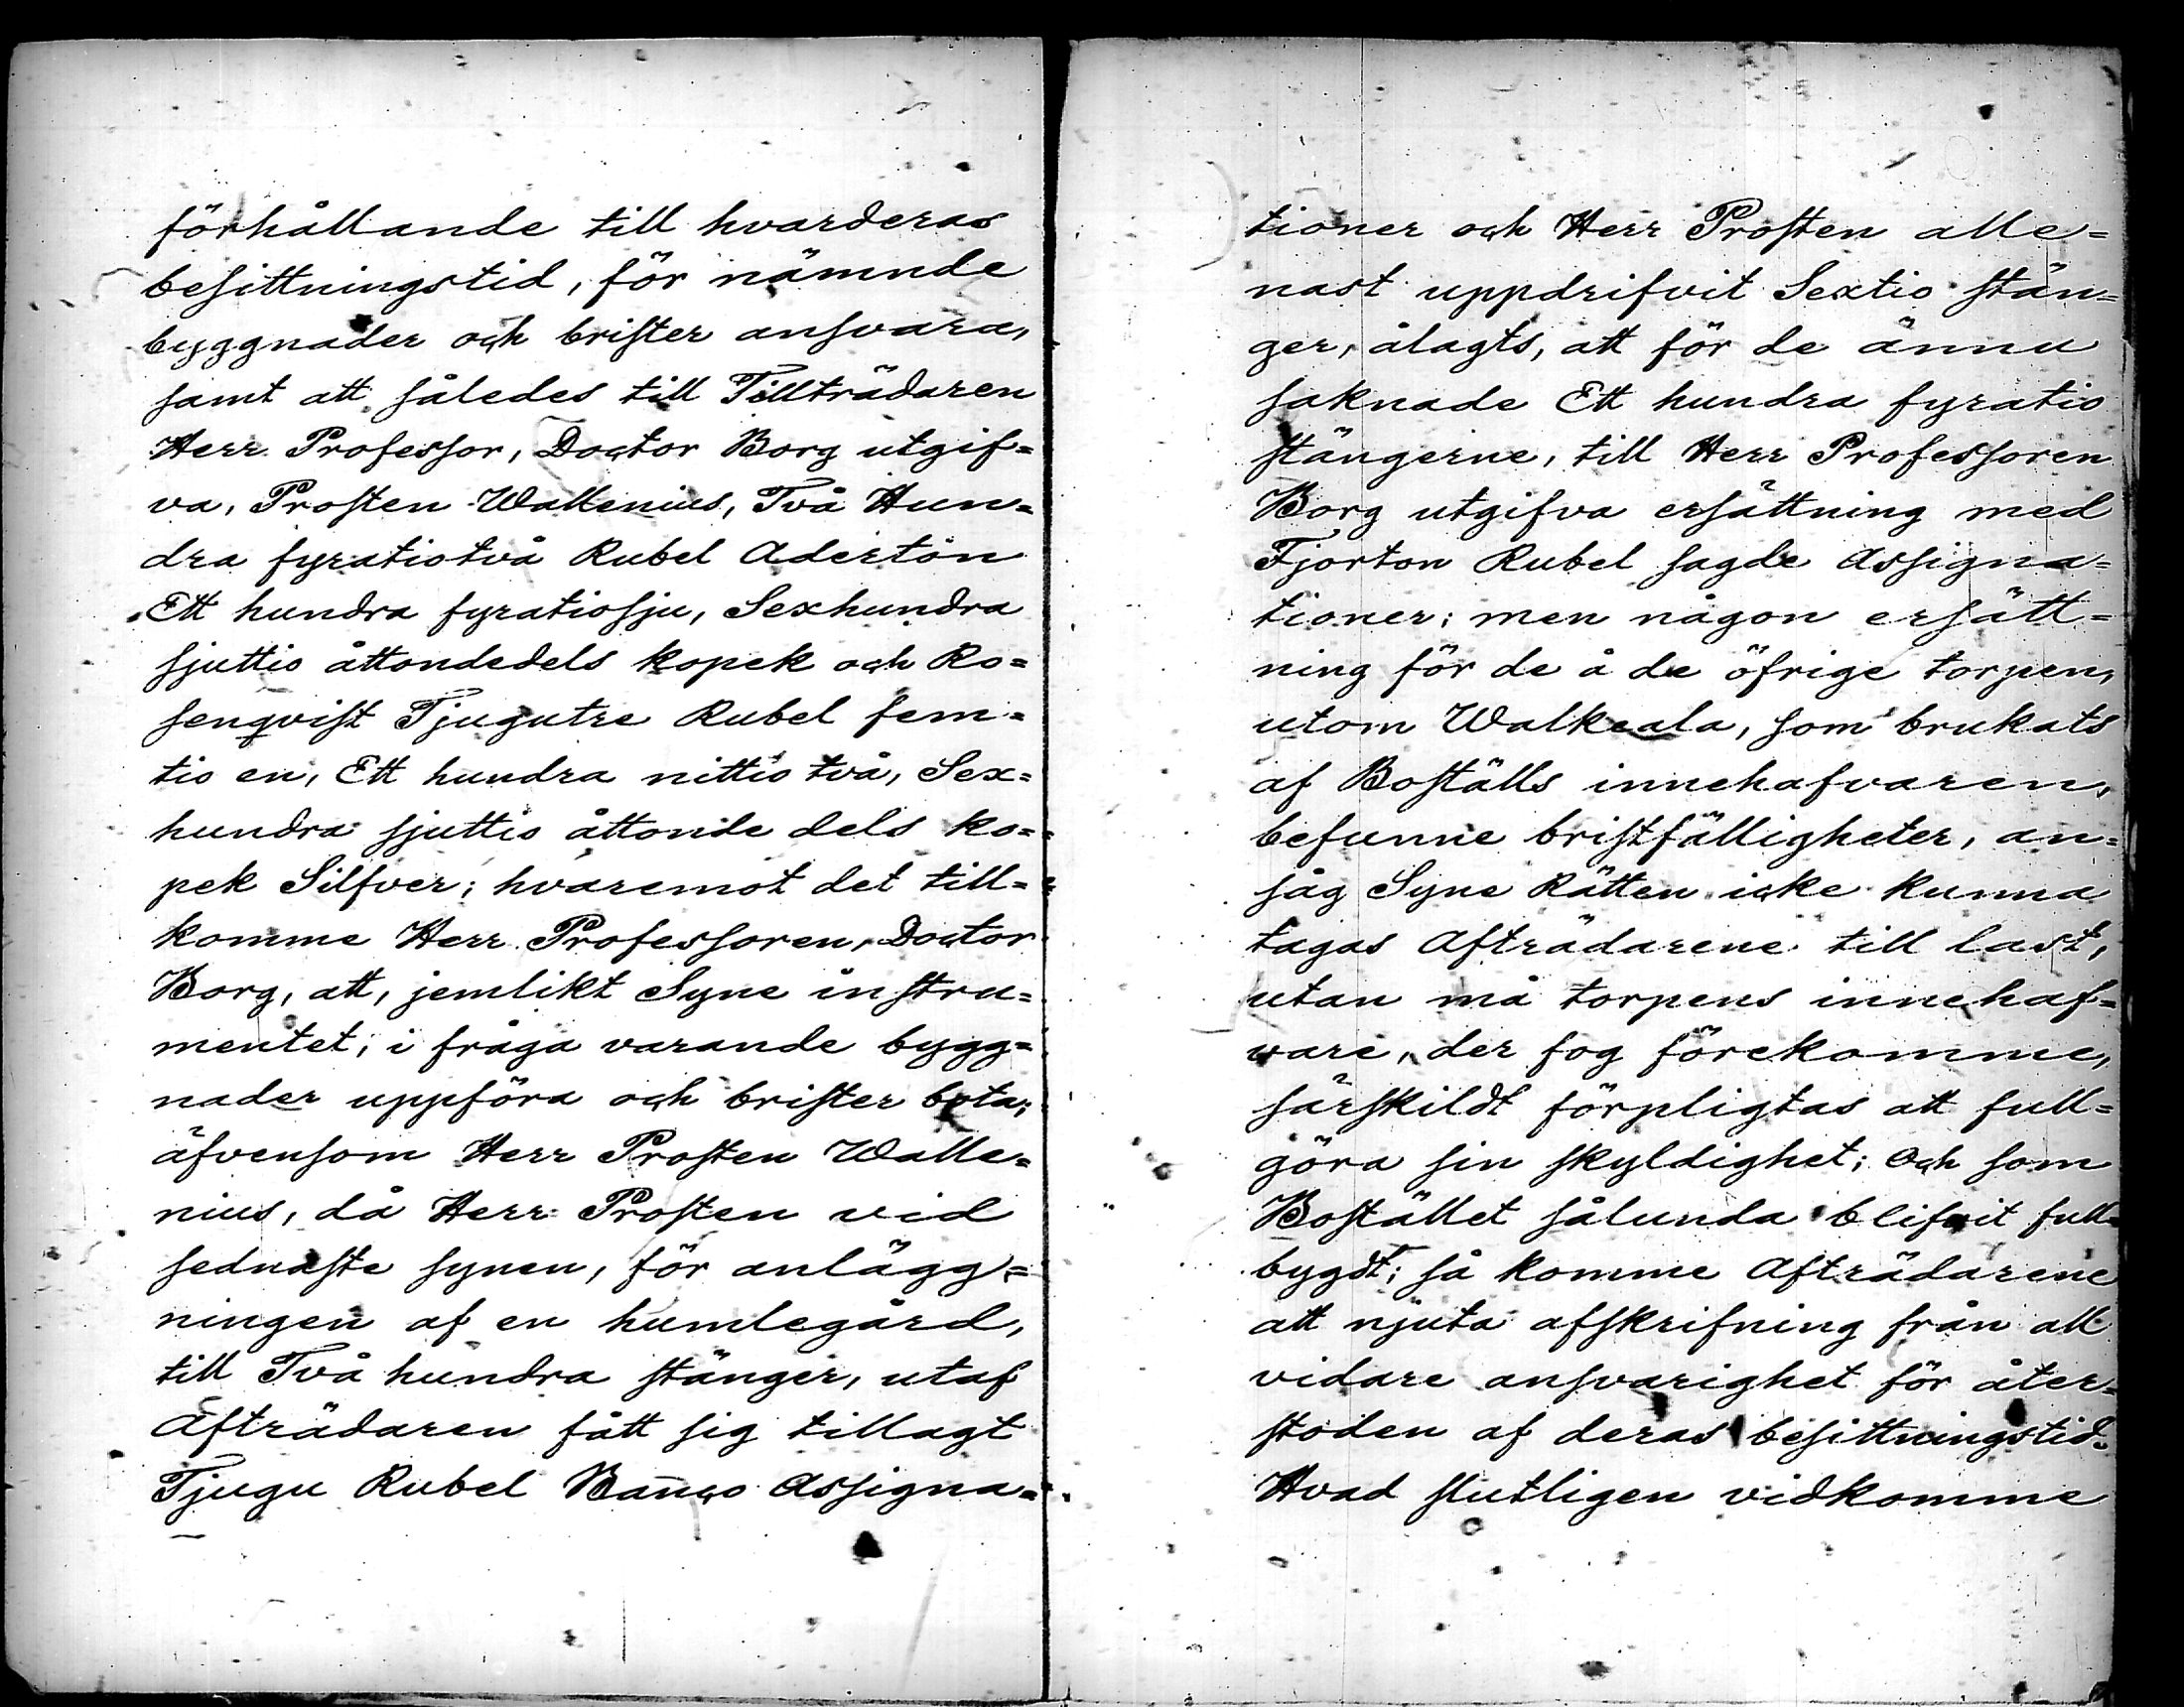 förhållande till hvarderas
besittningstid, för nämnde
byggnader och brister ansvara,
samt att således till Tillträdaren
Herr Professor, Doctor Borg utgif=
va, Prosten Wallenius, Två Hun=
dra fyratiotvå Rubel Adertön
Ett hundra fyratiosju, Sexhundra
sjuttio åttondedels kopek och Ro=
senqvist Tjugutre Rubel fem=
tio en, Ett hundra nittio två, Sex=
hundra sjuttio åttonde dels ko=
pek Silfver; hvaremot det till=
komme Herr Professoren, Doctor
Borg, att, jemlikt Syne instru=
mentet, i fråga varande bygg=
nader uppföra och brister bota;
äfvensom Herr Prosten Walle=
nius, då Herr Prosten vid
sednaste synen, för anlägg=
ningen af en humlegård,
till Två hundra stänger, utaf
Afträdaren fått sig tillagt
Tjugu Rubel Banco Assigna=
tioner och Herr Prosten alle=
nast uppdrifvit Sextio stän=
ger, ålagts, att för de ännu
saknade Ett hundra fyratio
stängerne, till Herr Professoren
Borg utgifva ersättning med
Fjorton Rubel sagde Assigna=
tioner; men någon ersätt=
ning för de å de öfrige torpen,
utom Walkeala, som brukats
af Boställs innehafvaren,
befunne bristfälligheter, an=
såg Syne Rätten icke kunna
tagas Afträdarene till last,
utan må torpens innehaf=
vare, der fog förekomme,
särskildt förpligtas att full=
göra sin skyldighet; Och som
Bostället sålunda blifvit full=
bygdt; så komme Afträdarene
att njuta afskrifning från all
vidare ansvarighet för åter=
stoden af deras besittningstid.
Hvad slutligen vidkomme